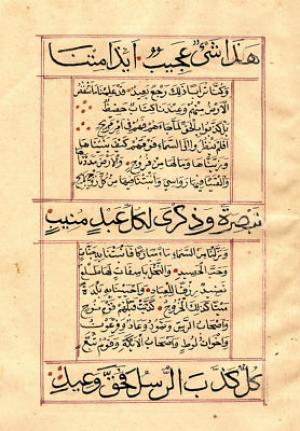 هَذَا شَئٌ عَجِيبٌ أَيِذَا مِتْنَا
وَكُنَّا تُرَابًا ذَلِكَ رَجْعٌ بَعِيدٌ قَدْ عَلِمْنَا مَا تَنْقُصُ
الْأَرْضُ مِنْهُمْ وَعِنْدَنَا كِتَابٌ حَفِيظٌ
بَلْ كَذَّبُوا بِالْحَقِّ لَمَّا جَاءَهُمْ فَهُمْ فِي أَمْرٍ مَرِيجٍ
أَفَلَمْ يَنْظُرُوا إِلَى السَّمَاءِ فَوْقَهُمْ كَيْفَ بَنَيْنَاهَا
وَزَيَّنَّاهَا وَمَا لَهَا مِنْ فُرُوجٍ وَالْأَرْضَ مَدَدْنَاهَا
وَأَلْقَيْنَا فِيهَا رَوَاسِيَ وَأَنْبَتْنَا فِيهَا مِنْ كُلِّ زَوْجٍ بَهِيجٍ
تَبْصِرَةً وَذِكْرَى لِكُلِّ عَبْدٍ مُنِيبٍ
وَنَزَّلْنَا مِنَ السَّمَاءِ مَاءً مُبَارَكًا فَأَنْبَتْنَا بِهِ جَنَّاتٍ
وَحَبَّ الْحَصِيدِ وَالنَّخْلَ بَاسِقَاتٍ لَهَا طَلْعٌ
نَضِيدٌ رِزْقًا لِلْعِبَادِ وَأَحْيَيْنَا بِهِ بَلْدَةً
مَيْتًا كَذَلِكَ الْخُرُوجُ كَذَّبَتْ قَبْلَهُمْ قَوْمُ نُوحٍ
وَأَصْحَابُ الرَّسِّ وَثَمُودُ وَعَادٌ وَفِرْعَوْنُ
وَإِخْوَانُ لُوطٍ وَأَصْحَابُ الْأَيْكَةِ وَقَوْمُ تُبَّعٍ
كُلٌّ كَذَّبَ الرُّسُلَ فَحَقَّ وَعِيدِ